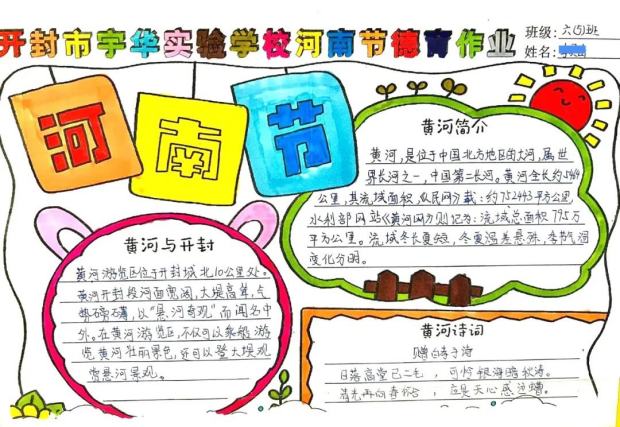 开封市宇华实验学校河南节德育作业
班级:六(5)班
姓名:
河南节
黄河简介
黄河,是位于中国北方地区的大河,属世
界长河之一,中国第二长河。黄河全长约5464
公里,其流域面积(人民网)载:约752443平方公里,
水利部网站《黄河网》则记为:流域总面积79.5万
平方公里。流域冬长夏短,冬夏温差悬殊,季节气温
变化分明。
黄河与开封
黄河游览区位于开封城北10公里处。
黄河开封段河面宽阔,大堤高耸,气
势磅礴,以“悬河奇观”而闻名中
外。在黄河游览区,不仅可以乘船游
览黄河壮丽景色,还可以登大坝观
赏悬河景观。
黄河诗词
赠
日落高堂已二毛,可怜银海暗秋涛。
清光再向春合,应是天心感